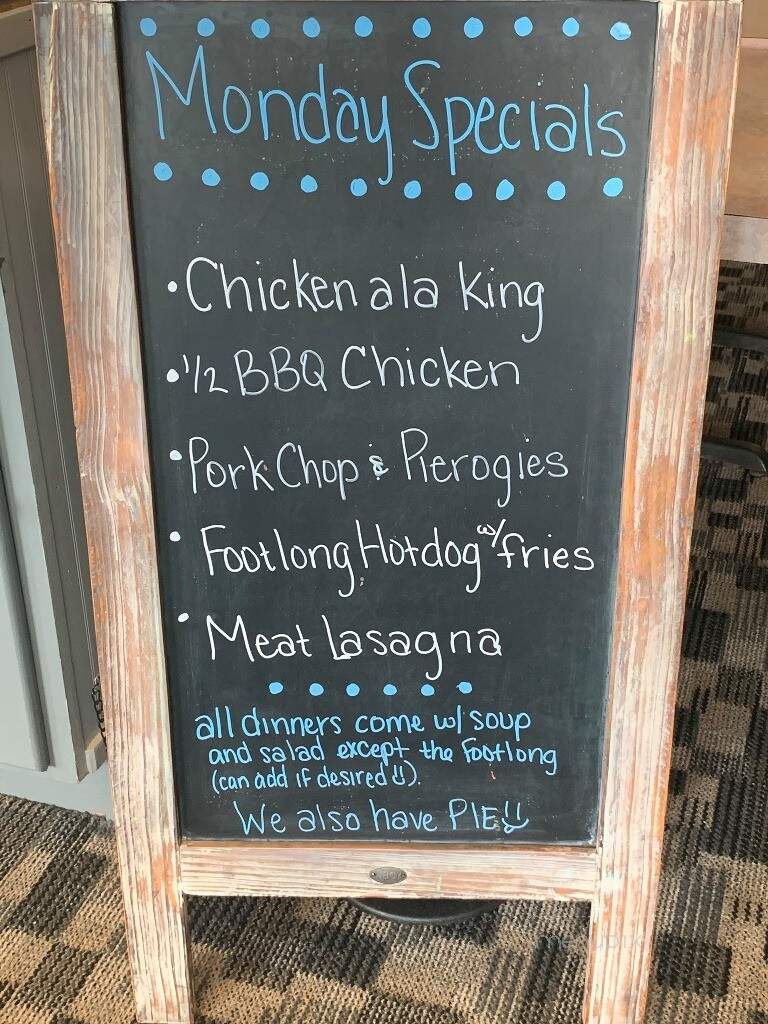 Monday Specials
• Chicken ala King
• 1/2 BBQ Chicken
• Pork Chop & Pierogies
• Footlong Hotdog w/ fries
• Meat Lasagna
all dinners come w/ soup
and salad except the Footlong
(can add if desired).
We also have PIE!!